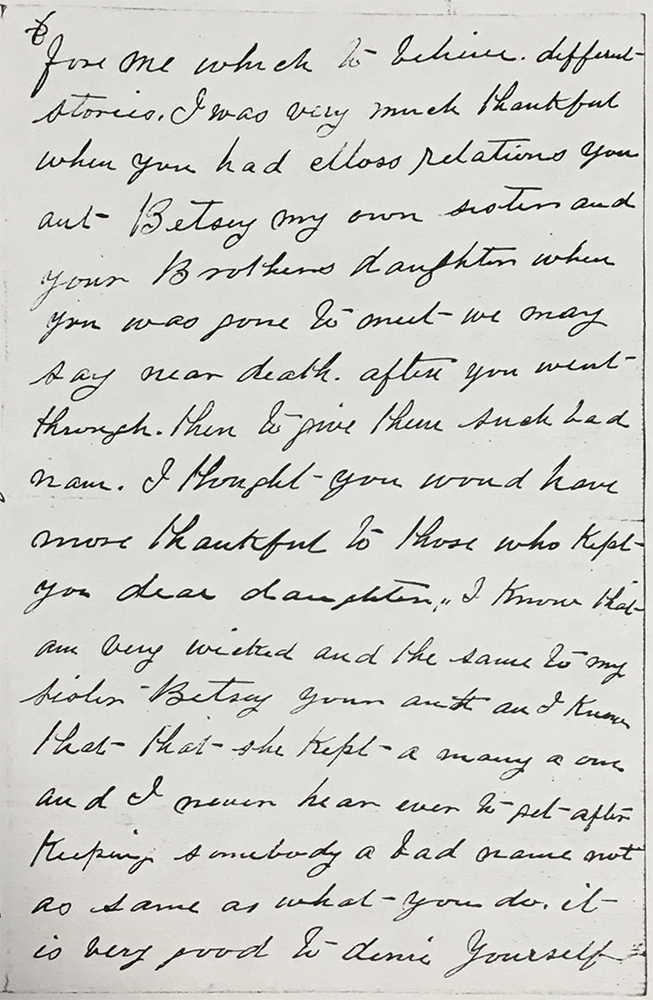 fore me which to believe. different
stories. I was very much thankful
when you had elloss relations you
aut Betsey my own sister and
your Brothers daughter when
you was gone to meet we may
say near death. after you went
through. then to give them such bad
nam. I thought you woud have
more thankful to those who kept
you dear daughter,, I know that
am very wicked and the same to my
sister Betsey your aunt an I know
that that she kept a many a one
and I never hear ever to get after
Keeping somebody a bad name not
as same as what you do. it
is very good to denie Yourself